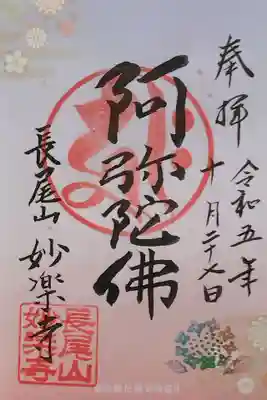 奉拝
令和五年
十月二十七日
阿弥陀佛
長尾山 妙楽寺
長尾山
妙楽寺